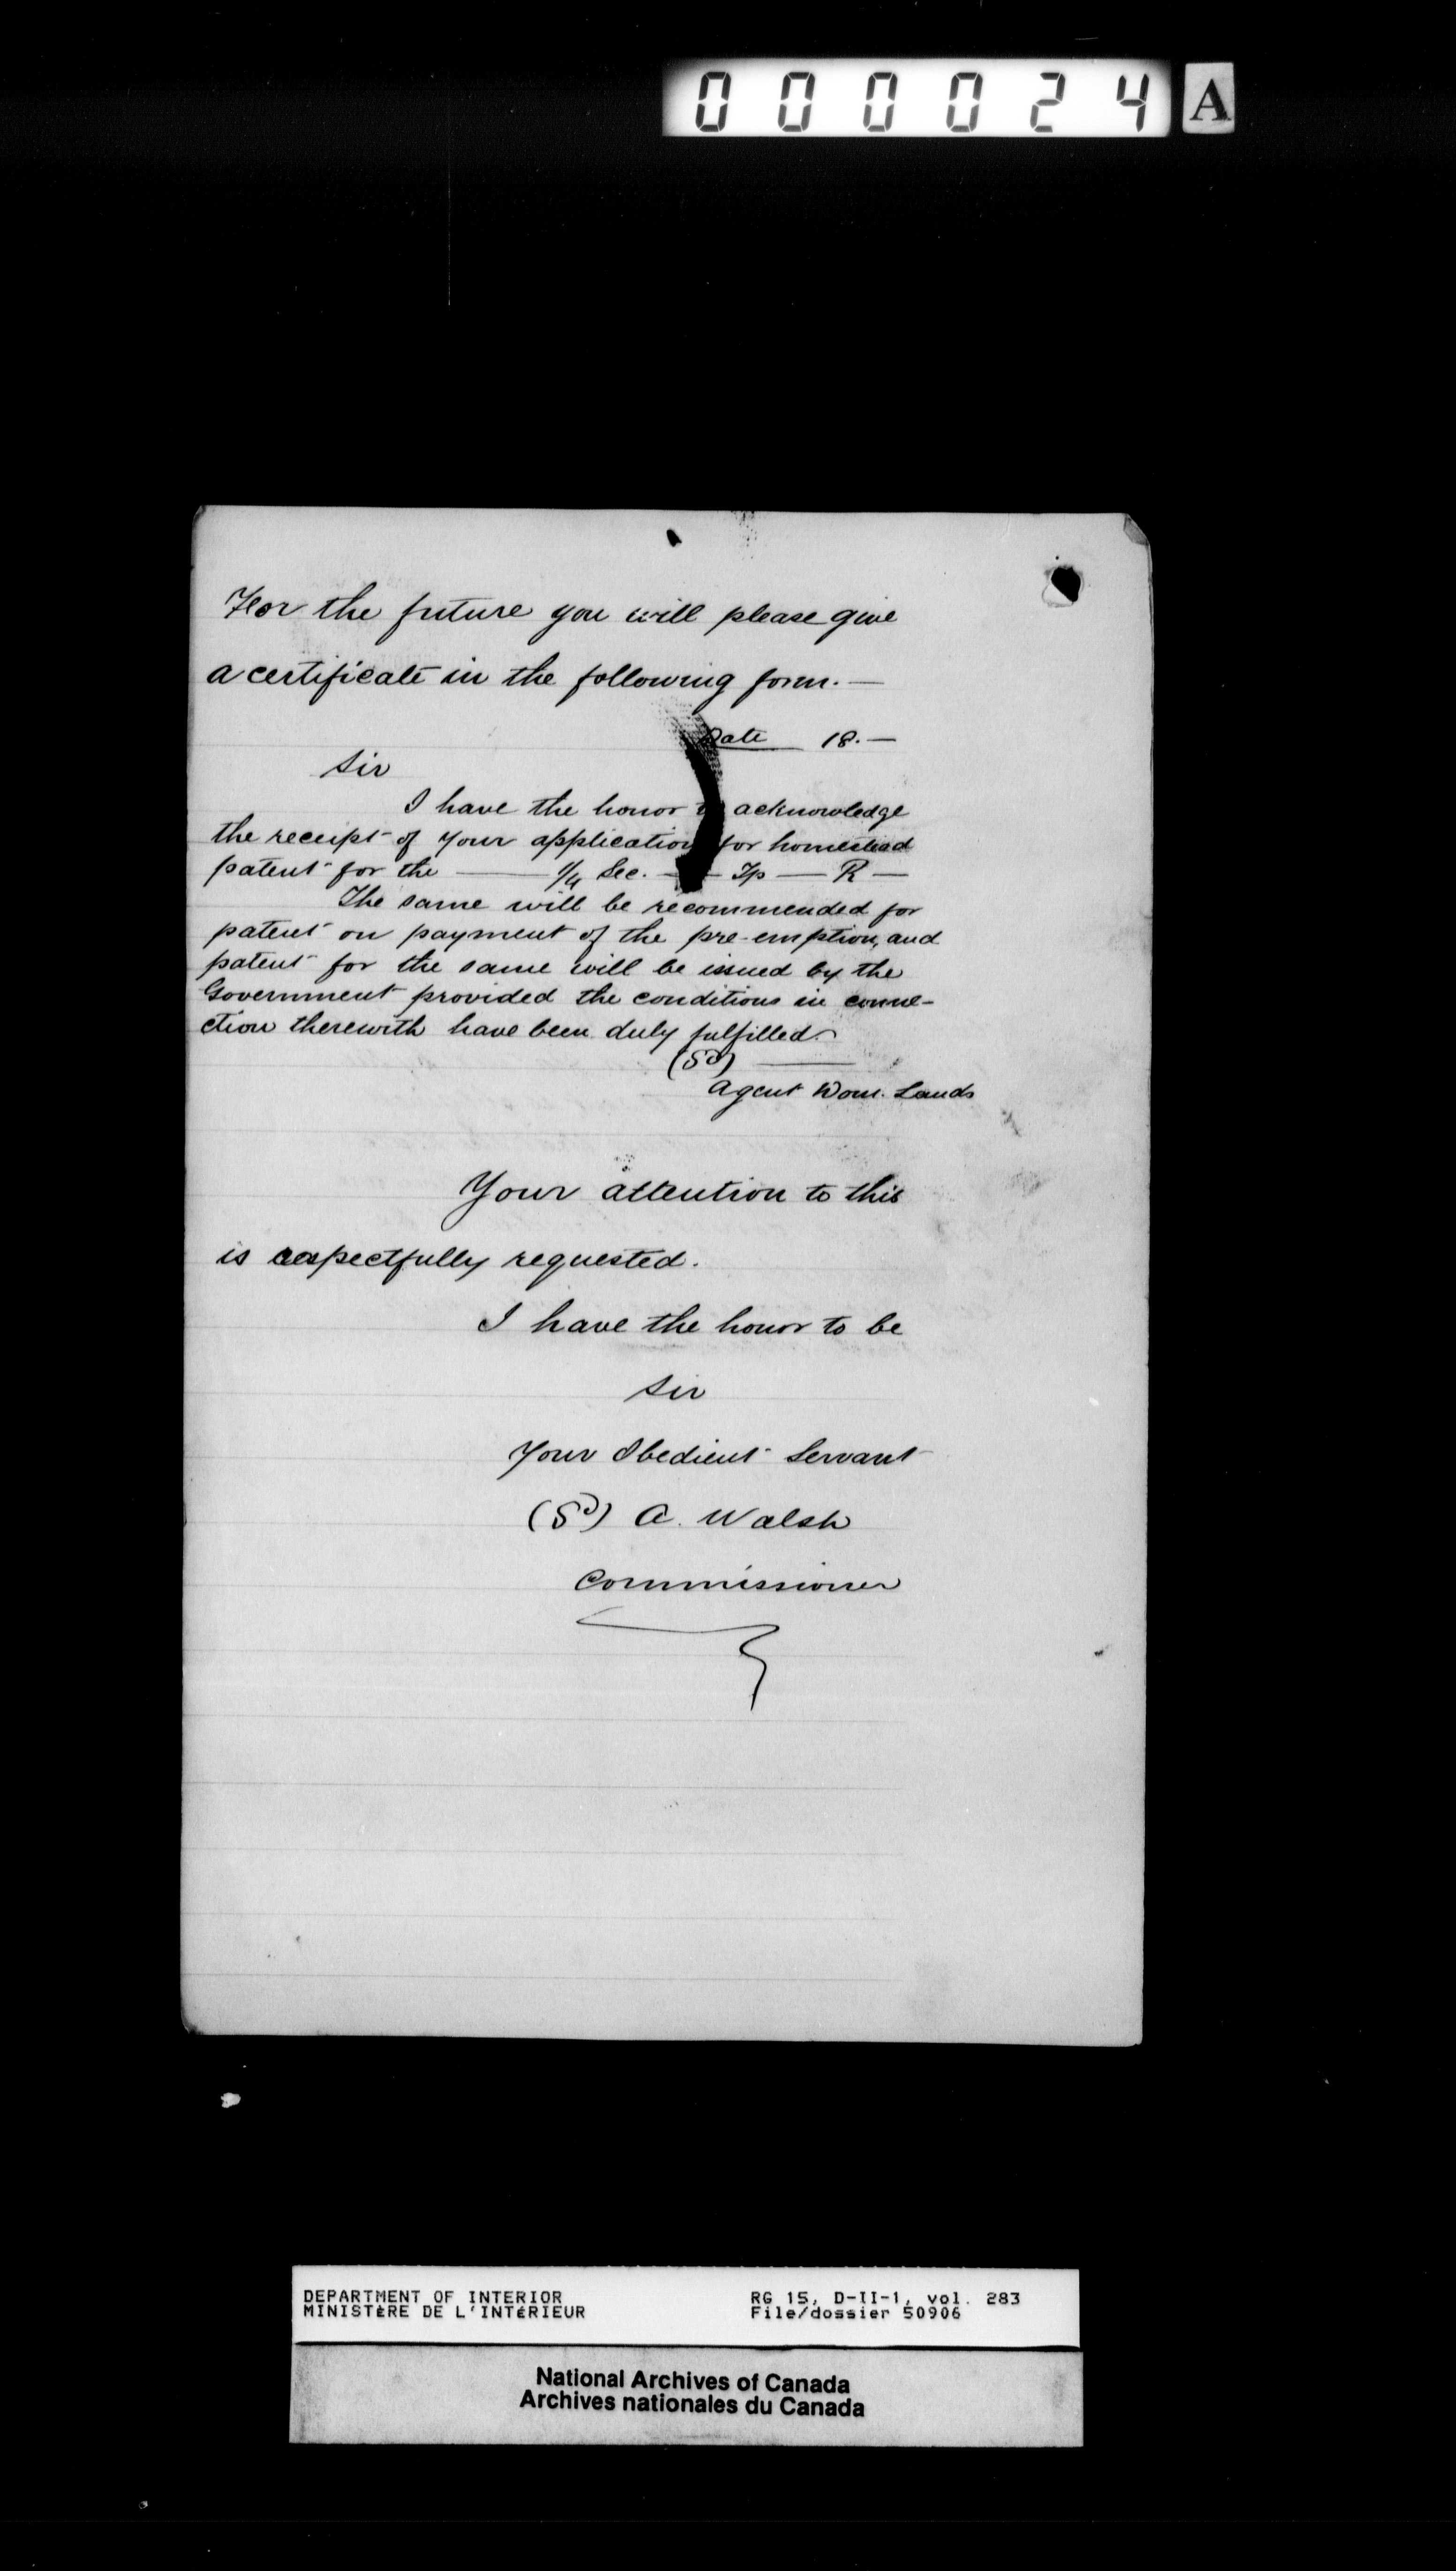 000024 A
For the future you will please give
a certificate in the following form. —
Date 18. —
Sir
I have the honor to acknowledge
the receipt of your application for homestead
patent for the — 1/4 Sec. — Tp — R —
The same will be recommended for
patent on payment of the pre-emption, and
patent for the same will be issued by the
Government provided the conditions in conne-
ction therewith have been duly fulfilled.
(Sd) —
Agent Dom. Lands
Your attention to this
is respectfully requested.
I have the honor to be
Sir
Your Obedient Servant
(Sd) A. Walsh
Commissioner
DEPARTMENT OF INTERIOR RG 15, D-II-1, vol. 283
MINISTÈRE DE L'INTÉRIEUR File/dossier 50906
National Archives of Canada
Archives nationales du Canada